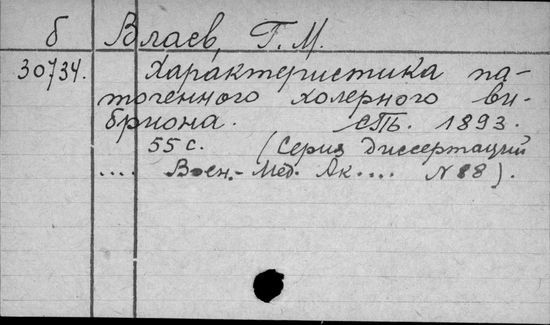 б Влаев, Г. М.
30734. Характеристика па-
точенного холерного ви-
бриона. СПБ. 1893.
55 с. (Серия Диссертаций
.... Воен.-Мед. Ак.... N 88).